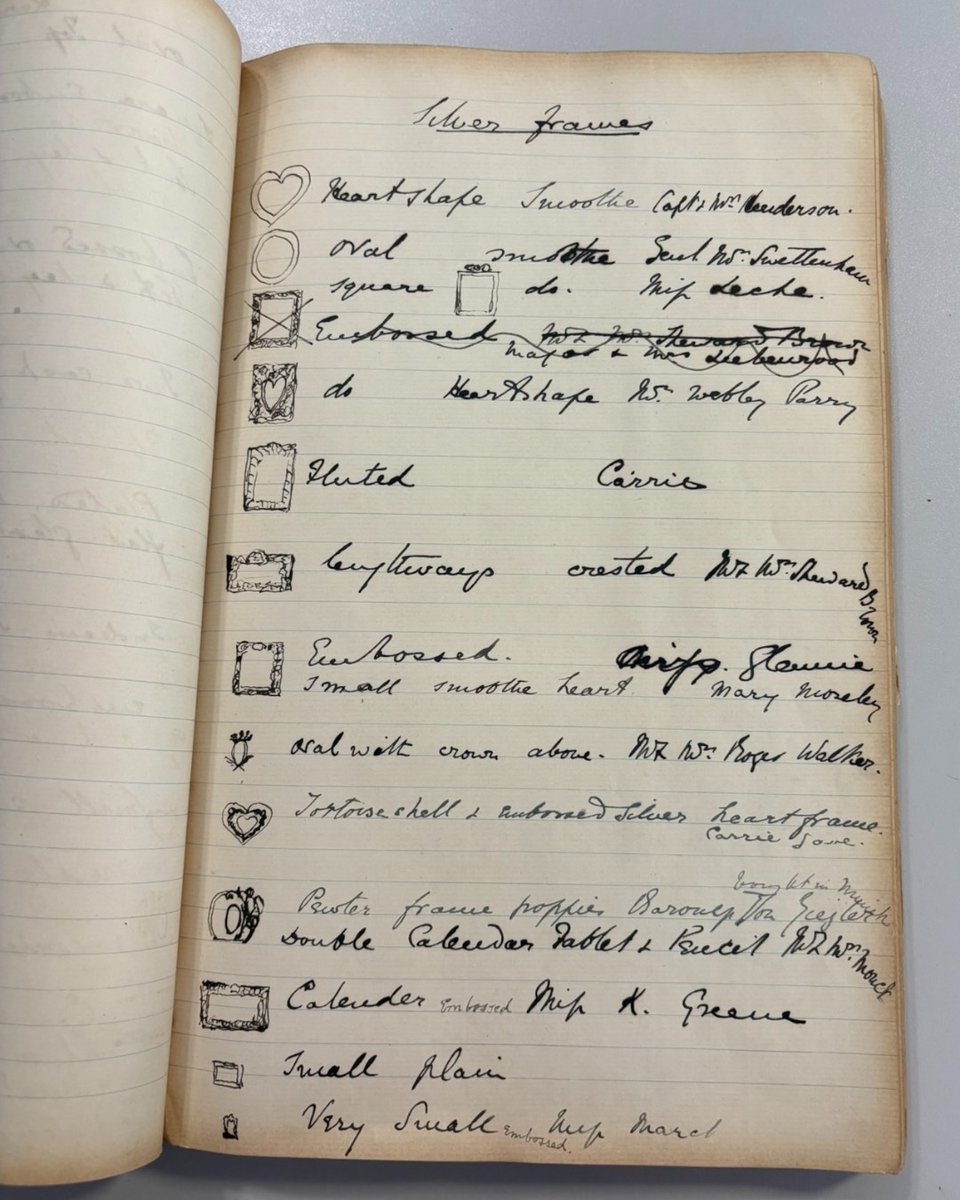 Silver frames
Heart shape Smoothe Capt & Mrs Henderson.
oval smoothe Genl. Mrs. Swettenham
square do. Miss Leche.
Embossed Mr & Mrs Steward Brown
Major & Mrs
do Heart shape Mrs. Webley Parry
Fluted Carrie
lengthways crested Mr & Mrs Steward Brown
Embossed. Miss. Glennie
Small smoothe heart Mary Moseley
oval with crown above. Mr & Mrs Roger Walker.
Tortoiseshell & embossed Silver heart frame.
Carrie gave.
bought in Munich
Pewter frame poppies Baroness Von
Double Calendar Tablet & Pencil Mr & Mrs Monck
Calender Embossed Miss K. Greene
Small plain
Very Small Embossed. Miss March